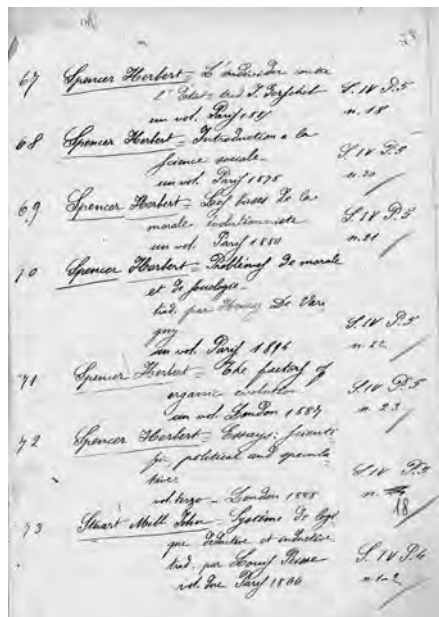 67 Spencer Herbert = L'individu contre
l'Etat = trad J. Gerschel S. IV P.5
un vol. Paris 1885 n. 18
68 Spencer Herbert = Introduction a la
science sociale - S. IV P.5
un vol. Paris 1878 n. 20
69 Spencer Herbert = Les bases de la
morale évolutionniste S. IV P.5
un vol. Paris 1880 n. 21
70 Spencer Herbert = Problèmes de morale
et de sociologie -
trad. par Henry De Vari
gny S. IV P.5
un vol. Paris 1894 n. 22
71 Spencer Herbert = The factors of
organic evolution S. IV P.5
un vol London 1887 n. 23
72 Spencer Herbert = Essays: scienti
fic political and specula
tive - S. IV P.5
vol. terzo - London 1888 n. 18
73 Stuart Mill John = Système de logi
que déductive et inductive
trad. par Louis Peisse S. IV P.6
vol. due Paris 1866 n. 1-2